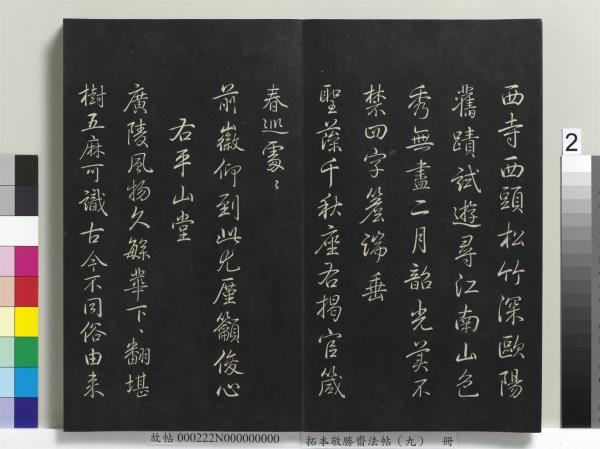 西寺西頭松竹深歐陽
舊蹟試遊尋江南山色
秀無盡二月韶光美不
禁四字簷端垂
聖藻千秋座右揭官箴
春巡處〻
前徽仰到此尤廑籲俊心
右平山堂
廣陵風物久緐華下〻翻堪
樹五麻可識古今不同俗由来
2
故帖 000222N000000000
拓本敬勝齋法帖（九） 冊